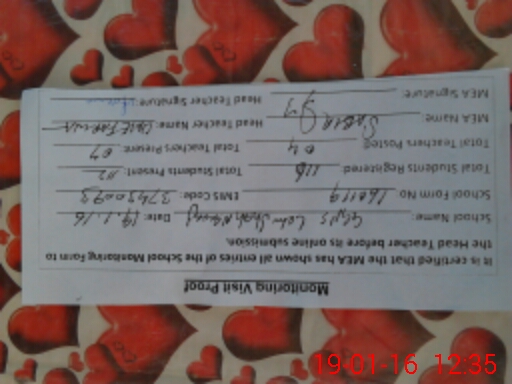 Monitoring Visit Proof
It is certified that the MEA has shown all entries of the School Monitoring Form to
the Head Teacher before its online submission.
School Name: Date: 19.1.16
School Form No 160119 EMIS Code:
Total Students Registered: 118 Total Students Present: 112
Total Teachers Posted: 04 Total Teachers Present: 04
MEA Name: SABIR Head Teacher Name:
MEA Signature: Head Teacher Signature:
19-01-16 12:35